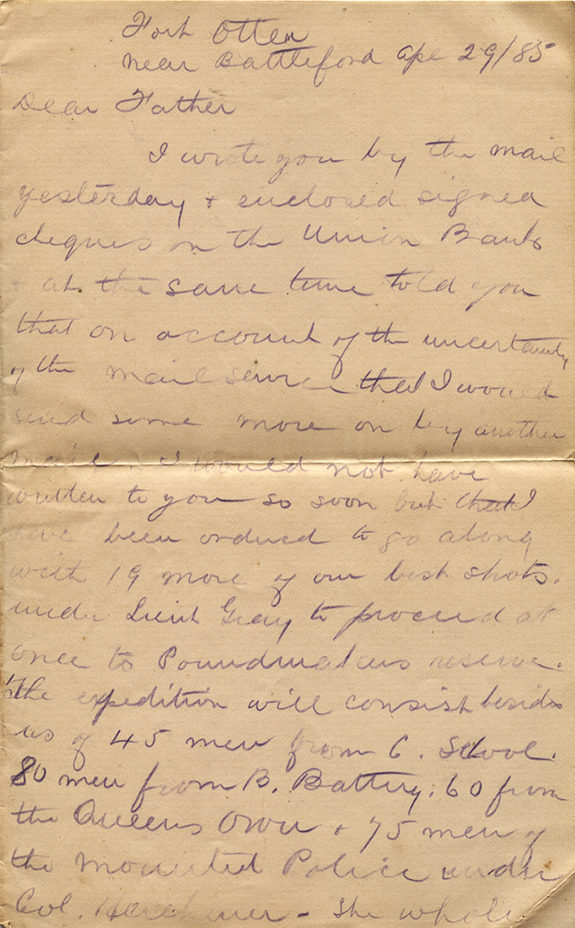 Fort Otter
near Battleford Ape 29/85
Dear Father
I wrote you by the mail
yesterday + enclosed signed
cheques on the Union Bank
+ at the same time told you
that on account of the uncertainty
of the mail service that I would
send some more on by another
mail. I would not have
written to you so soon but that I
have been ordered to go along
with 19 more of our best shots.
under Lieut Gray to proceed at
once to Poundmakers reserve.
The expedition will consist besides
us of 45 men from C. School.
80 men from B. Battery, 60 from
the Queens Own + 75 men of
the Mounted Police under
Col. Herchmer - The whole